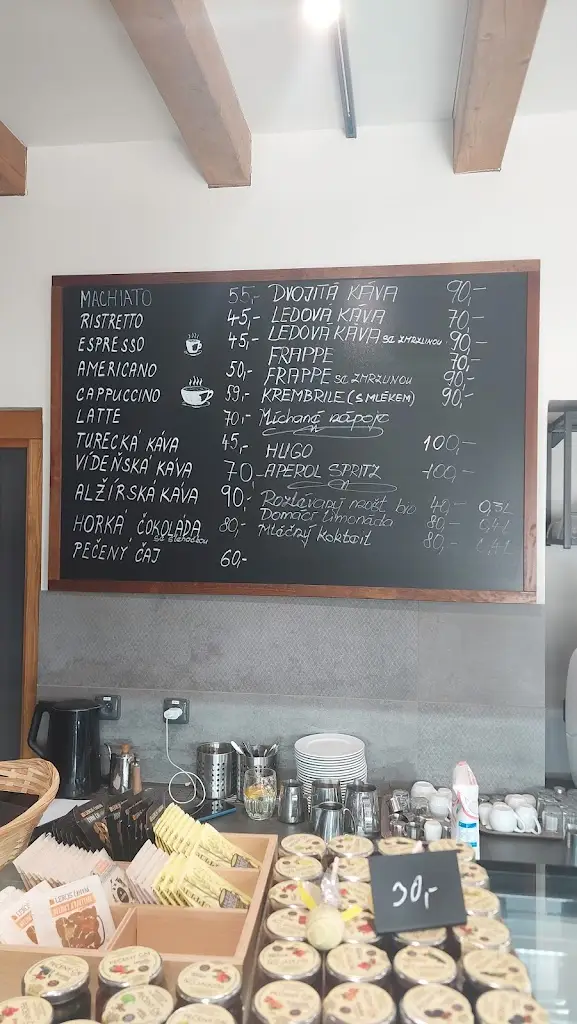 MACHIATO 55,-
RISTRETTO 45,-
ESPRESSO 45,-
AMERICANO 50,-
CAPPUCCINO 59,-
LATTE 70,-
TURECKÁ KÁVA 45,-
VÍDEŇSKÁ KÁVA 70,-
ALŽÍRSKÁ KÁVA 90,-
HORKÁ ČOKOLÁDA 80,-
se šlehačkou
PEČENÝ ČAJ 60,-
DVOJITÁ KÁVA 90,-
LEDOVÁ KÁVA 70,-
LEDOVÁ KÁVA SE ZMRZLINOU 90,-
FRAPPE 70,-
FRAPPE SE ZMRZLINOU 90,-
KREMBRILE (S MLÉKEM) 90,-
Míchané nápoje
HUGO 100,-
APEROL SPRITZ 100,-
Rozlévaný mošt bio 40,- 0,3L
Domácí limonáda 80,- 0,4L
Mléčný koktail 80,- 0,4L
30,-